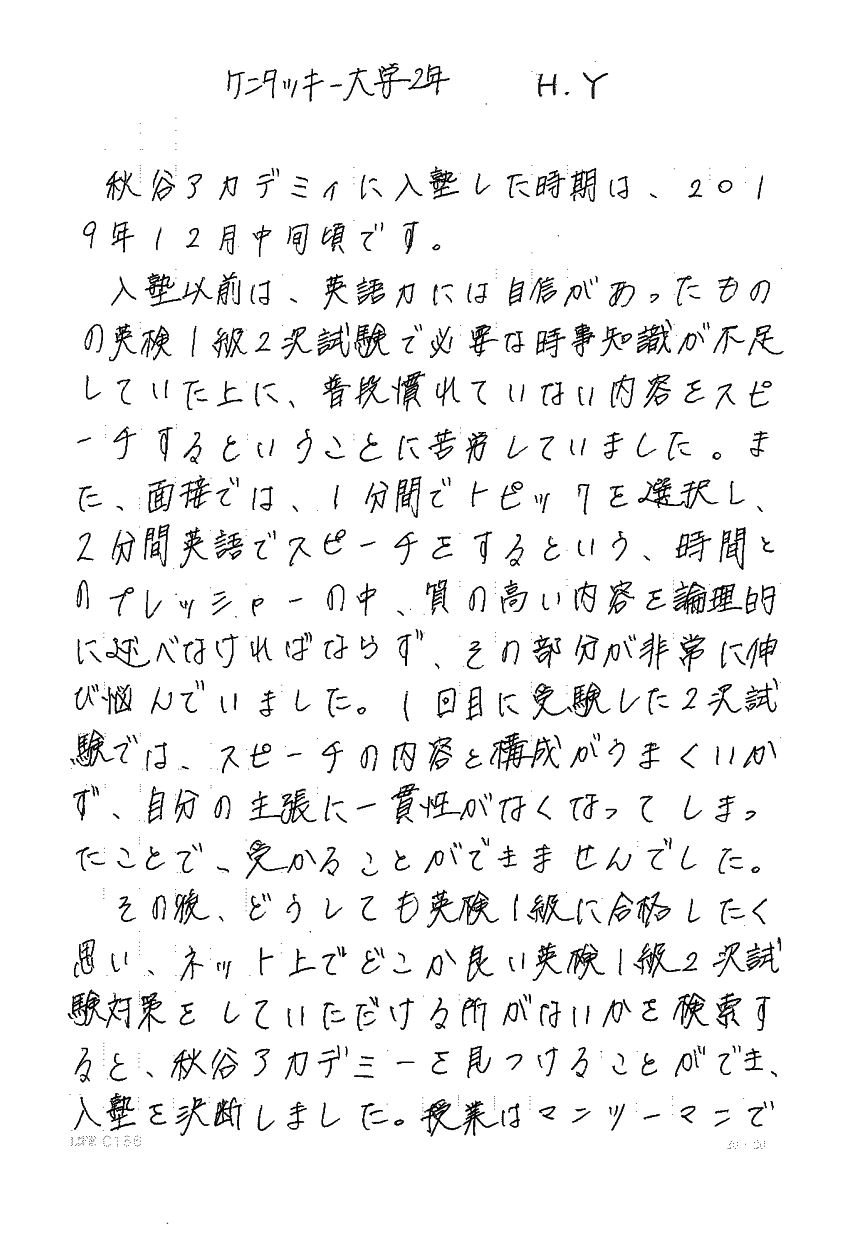 ケンタッキー大学2年 H.Y
秋谷アカデミィに入塾した時期は、201
9年12月中旬頃です。
入塾以前は、英語力には自信があったもの
の英検1級2次試験で必要な時事知識が不足
していた上に、普段慣れていない内容をスピ
ーチするということに苦労していました。ま
た、面接では、1分間でトピックを選択し、
2分間英語でスピーチをするという、時間と
のプレッシャーの中、質の高い内容を論理的
に述べなければならず、その部分が非常に伸
び悩んでいました。1回目に受験した2次試
験では、スピーチの内容と構成がうまくいか
ず、自分の主張に一貫性がなくなってしまっ
たことで、受かることができませんでした。
その後、どうしても英検1級に合格したく
思い、ネット上でどこか良い英検1級2次試
験対策をしていただける所がないかを検索す
ると、秋谷アカデミーを見つけることができ、
入塾を決断しました。授業はマンツーマンで
LIFE C156
20×20